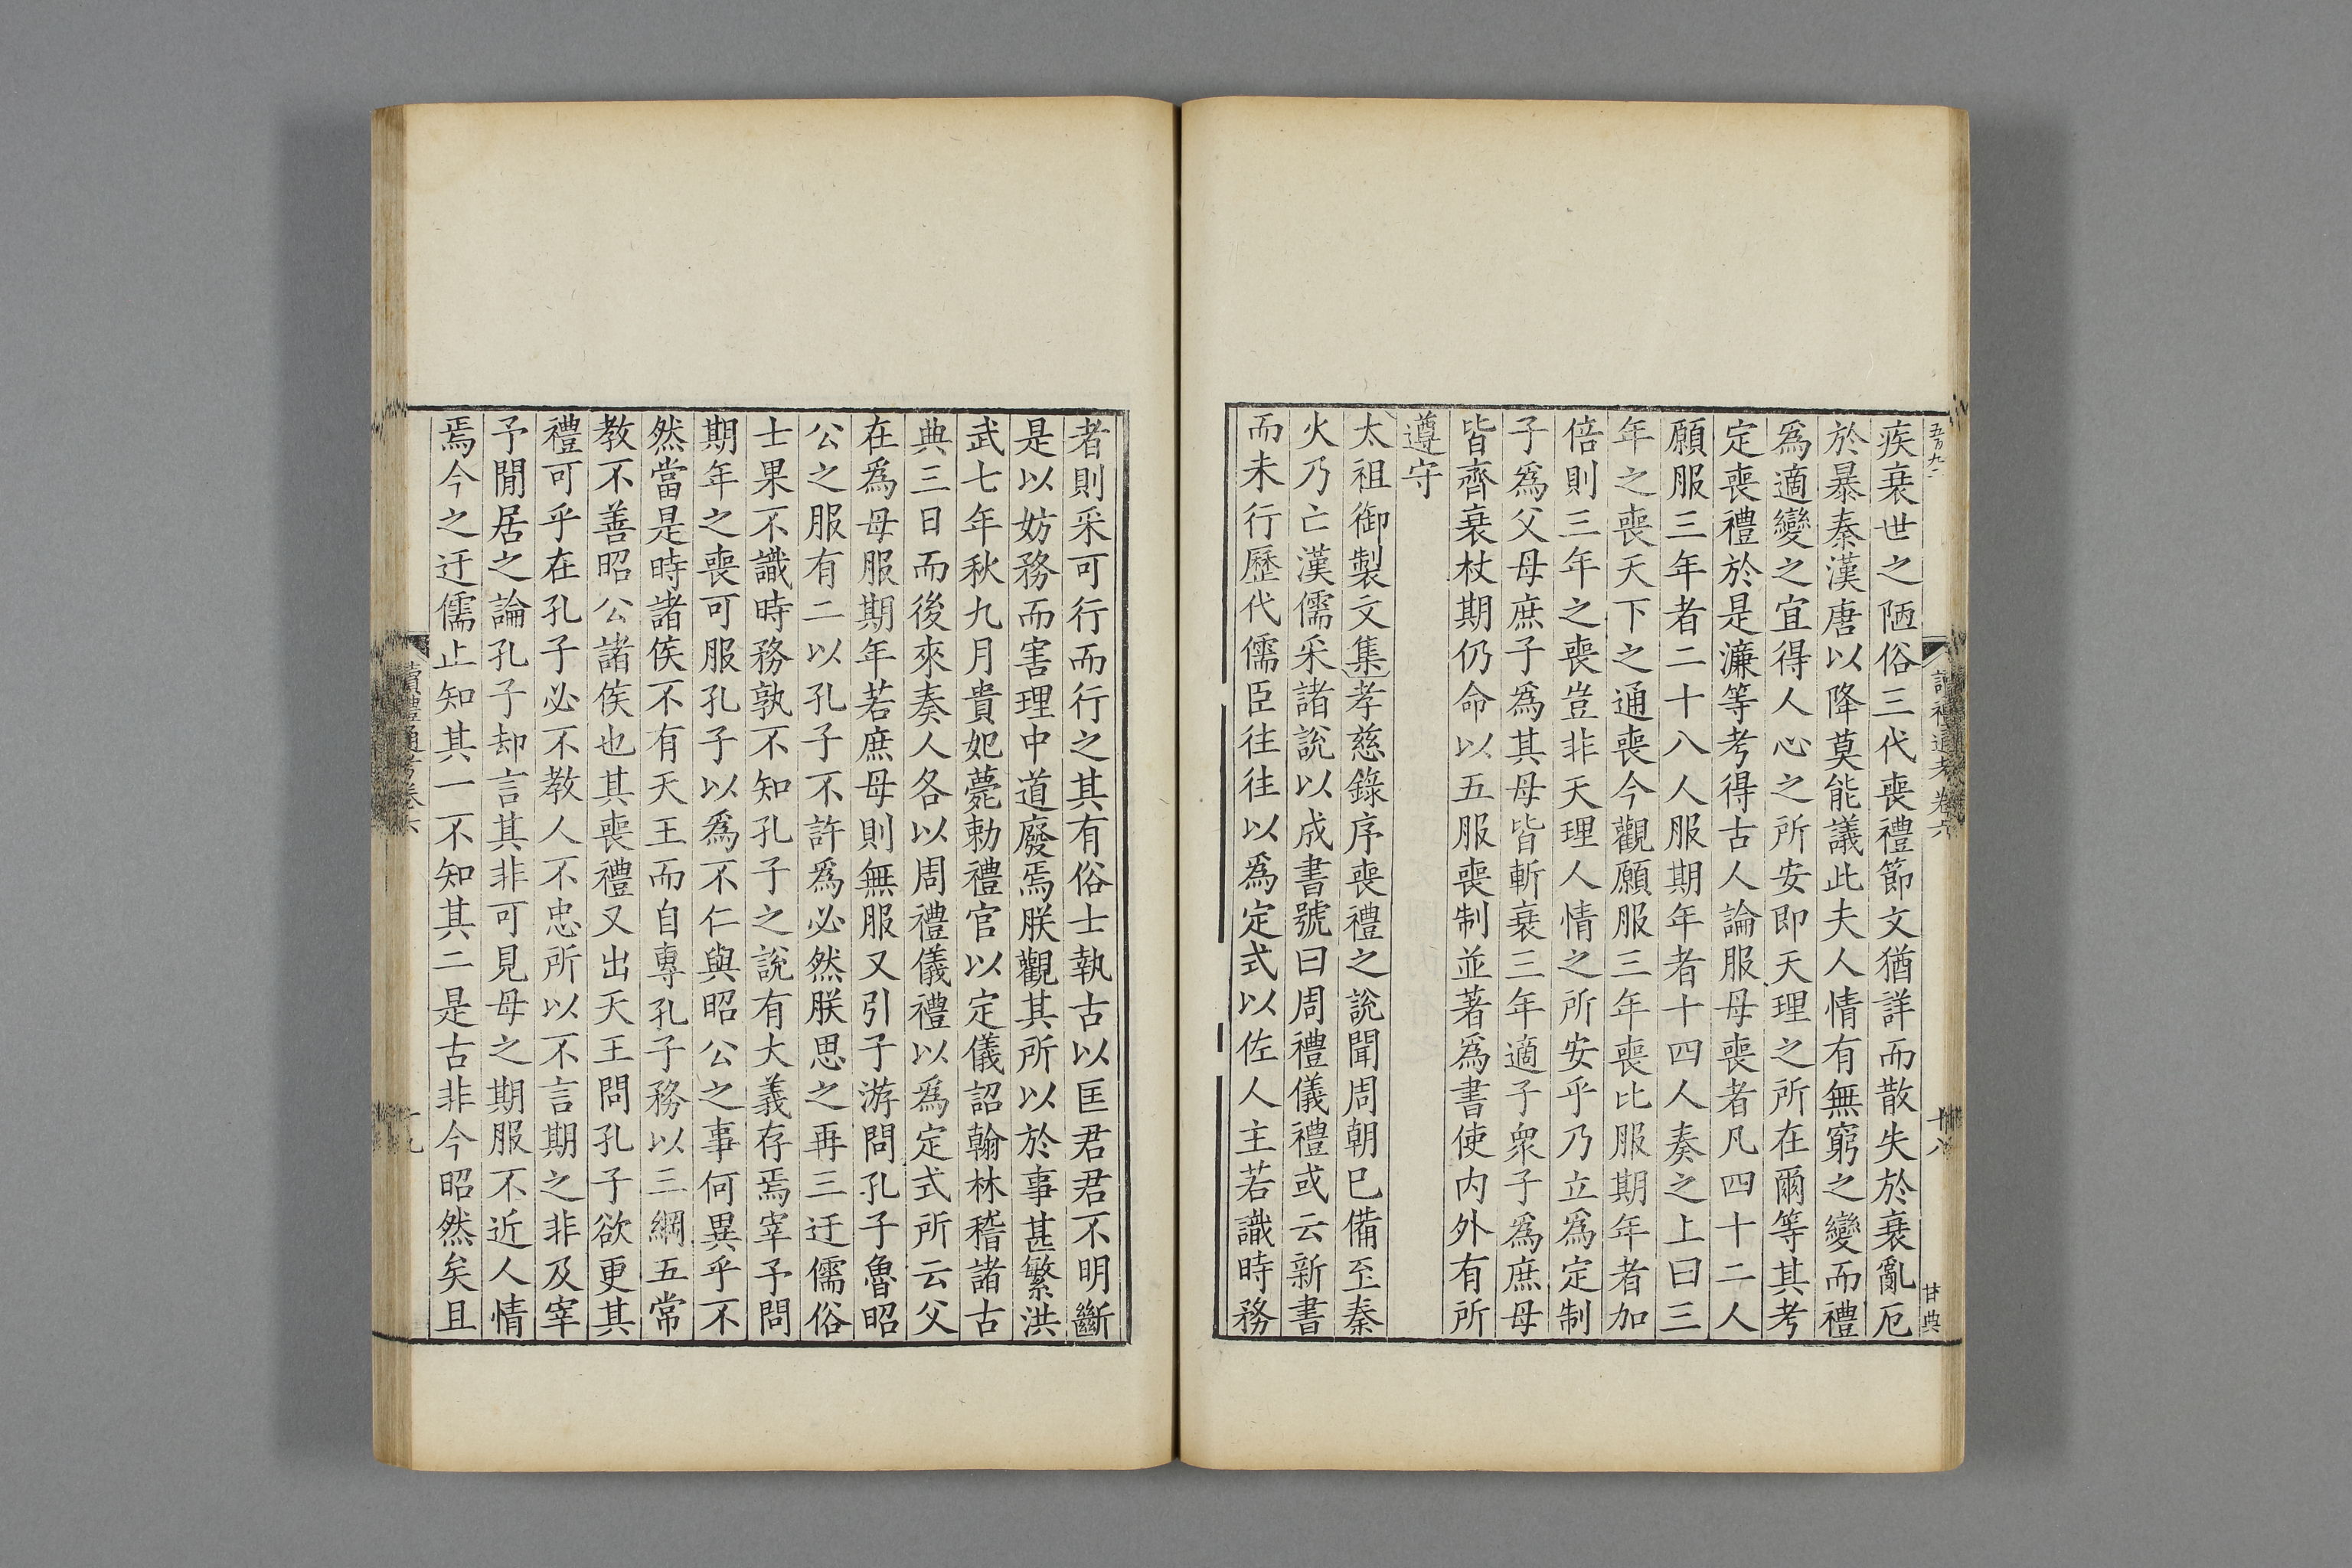 五百九二
讀禮通考卷六
十八
甘典
疾衰世之陋俗三代喪禮節文猶詳而散失於衰亂厄
於暴秦漢唐以降莫能議此夫人情有無窮之變而禮
爲適變之宜得人心之所安即天理之所在爾等其考
定喪禮於是濂等考得古人論服母喪者凡四十二人
願服三年者二十八人服期年者十四人奏之上曰三
年之喪天下之通喪今觀願服三年喪比服期年者加
倍則三年之喪豈非天理人情之所安乎乃立爲定制
子爲父母庶子爲其母皆斬衰三年適子衆子爲庶母
皆齊衰杖期仍命以五服喪制並著爲書使內外有所
遵守
太祖御製文集孝慈錄序喪禮之說聞周朝已備至秦
火乃亡漢儒采諸說以成書號曰周禮儀禮或云新書
而未行歷代儒臣往往以爲定式以佐人主若識時務
者則采可行而行之其有俗士執古以匡君君不明斷
是以妨務而害理中道廢焉朕觀其所以於事甚繁洪
武七年秋九月貴妃薨勅禮官以定儀詔翰林稽諸古
典三日而後來奏人各以周禮儀禮以爲定式所云父
在爲母服期年若庶母則無服又引子游問孔子魯昭
公之服有二以孔子不許爲必然朕思之再三迂儒俗
士果不識時務孰不知孔子之說有大義存焉宰予問
期年之喪可服孔子以爲不仁與昭公之事何異乎不
然當是時諸侯不有天王而自專孔子務以三綱五常
教不善昭公諸侯也其喪禮又出天王問孔子欲更其
禮可乎在孔子必不教人不忠所以不言期之非及宰
予閒居之論孔子却言其非可見母之期服不近人情
焉今之迂儒止知其一不知其二是古非今昭然矣且
讀禮通考卷六
十九